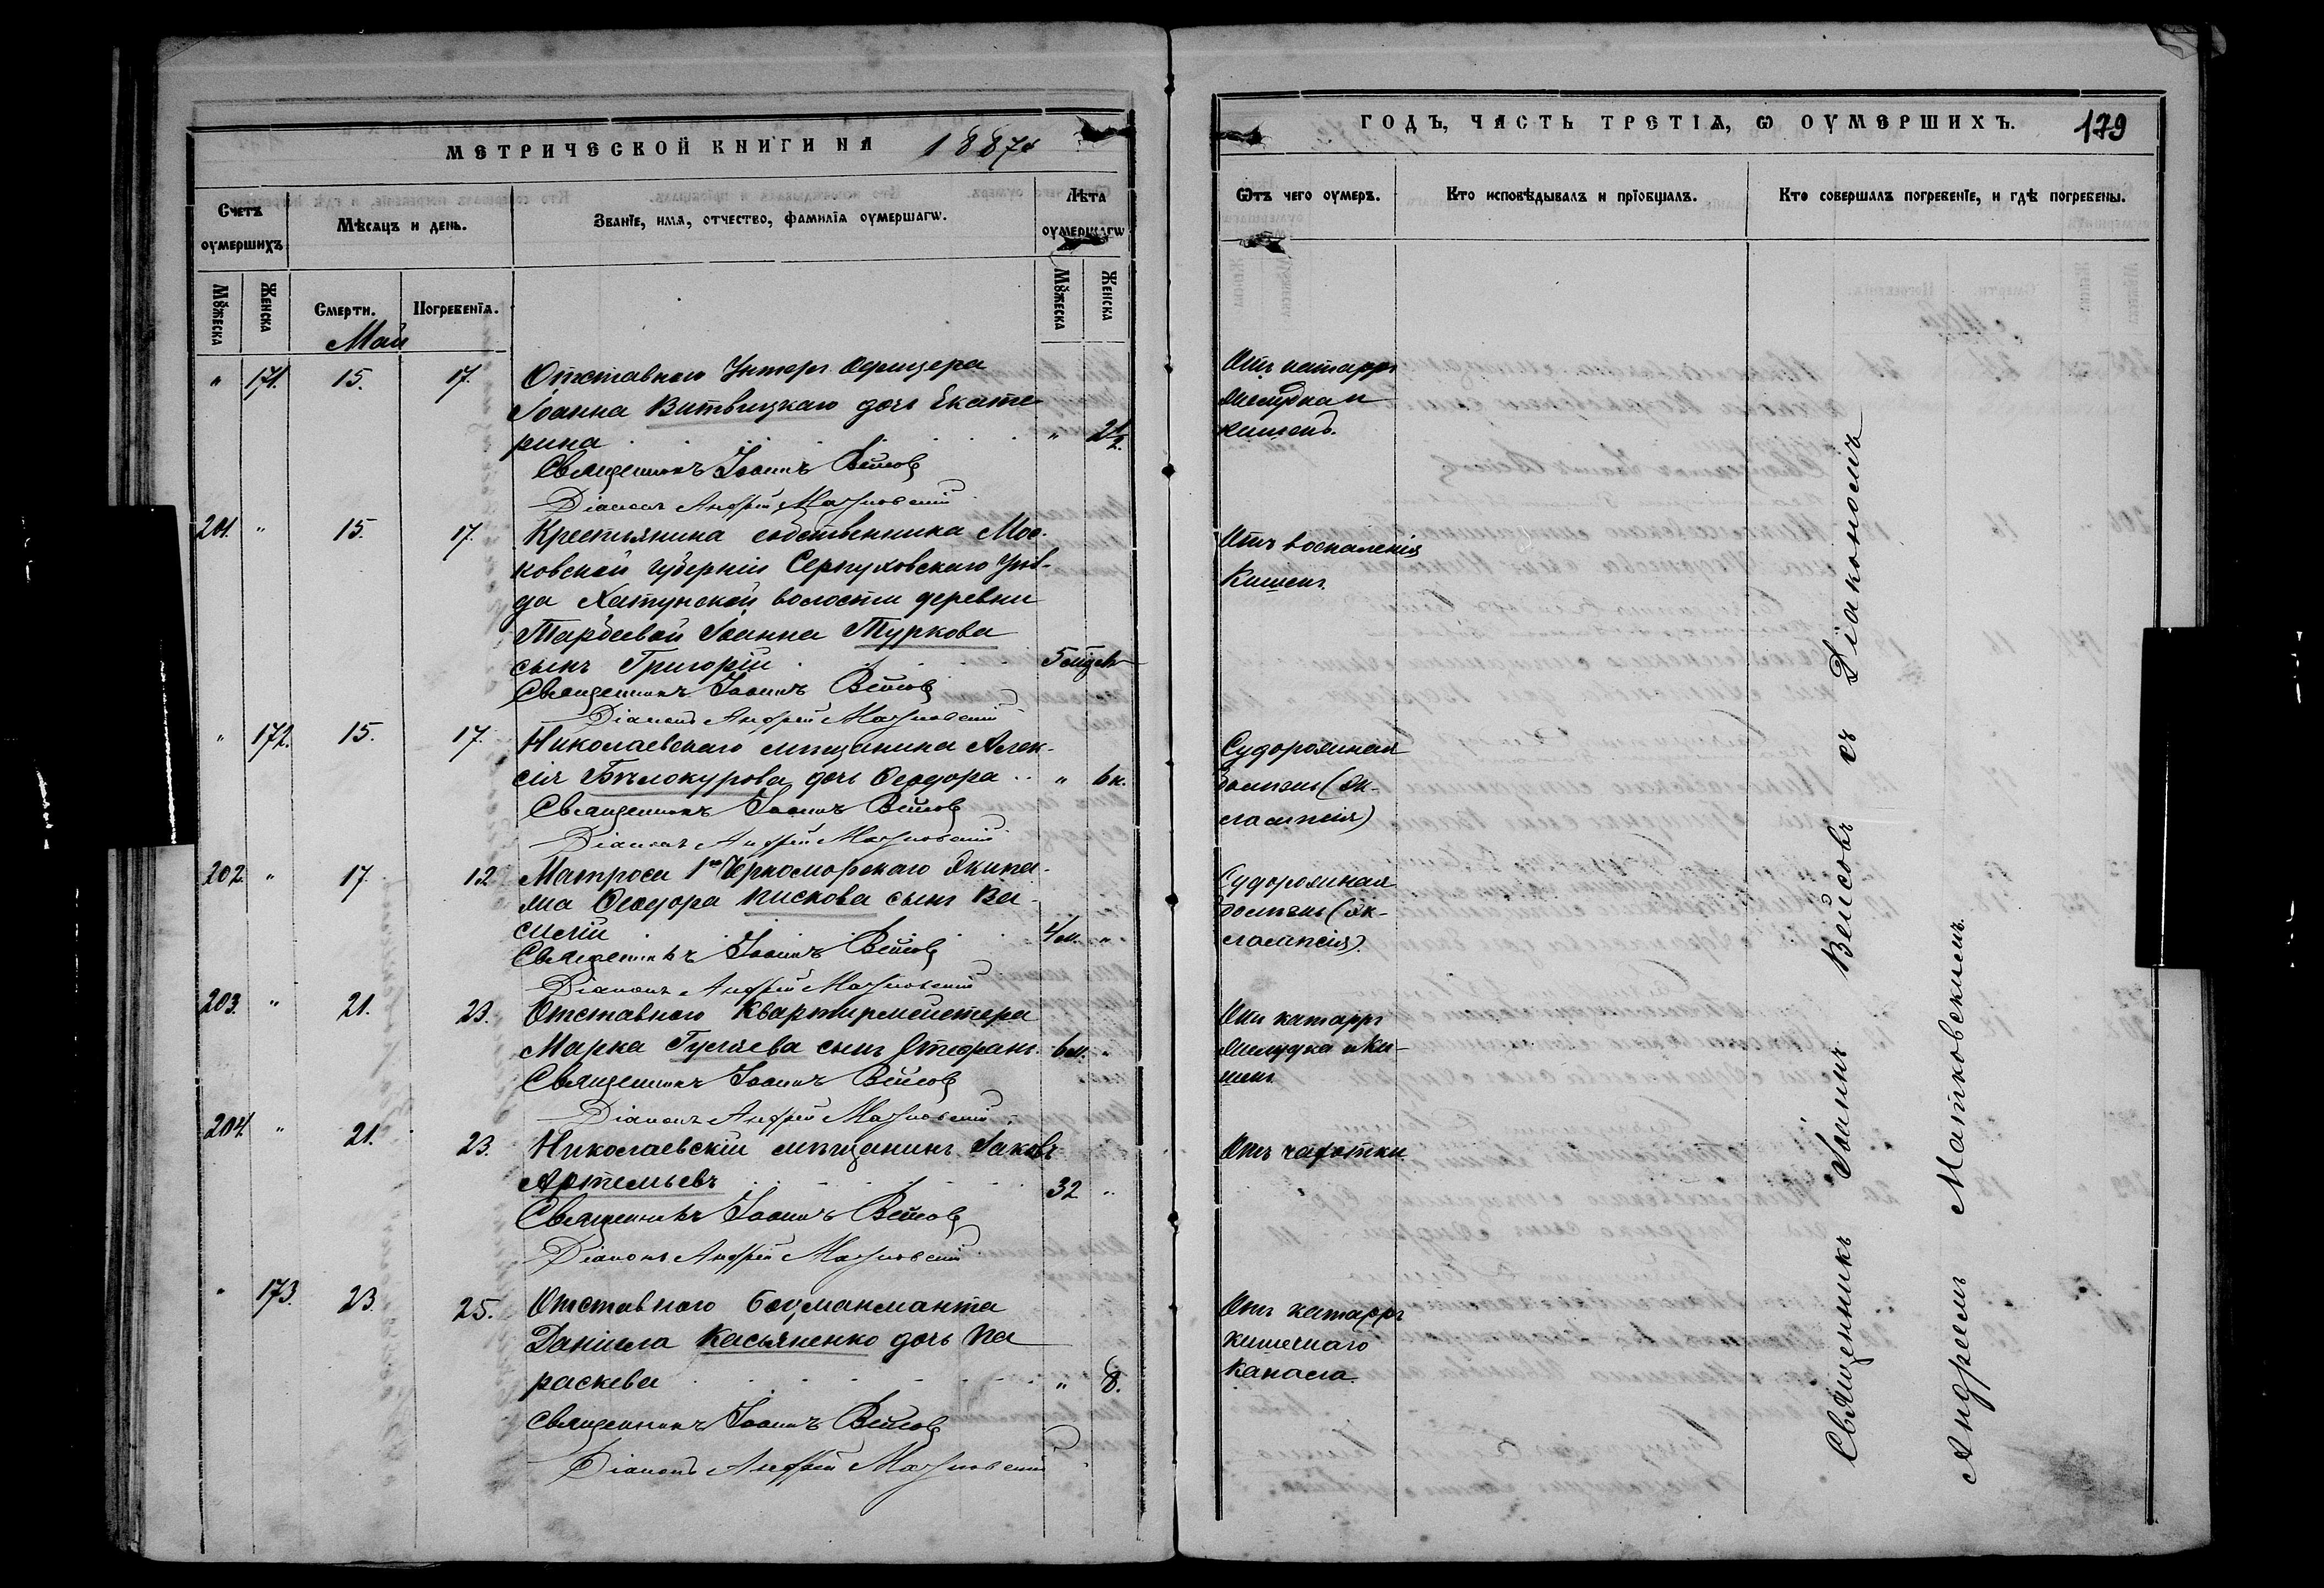 МЕТРИЧЕСКОЙ КНИГИ НА 1887
Счетъ оумершихъ
Мѣсяцъ и день.
Званіе, имя, отчество, фамилія оумершагѡ.
Лѣта оумершагѡ
Мꙋжеска
Женска
Смерти.
Погребенія.
Мꙋжеска
Женска
Май
" 171. 15. 17. Отставнаго Унтеръ Офицера
Іоанна Витвицкаго дочь Екате
рина " 2½
Священникъ Іоаннъ Вейсовъ
Діаконъ Андрей Матковскій
201. " 15. 17. Крестьянина собственника Мос-
ковской губерніи Серпуховскаго Уѣз-
да Хатунской волости деревни
Іоанна Туркова
сынъ Григорій
Священникъ Іоаннъ Вейсовъ
Діаконъ Андрей Матковскій
" 172. 15. 17. Николаевскаго мѣщанина Алек-
сія Бѣлокурова дочь Ѳеодора "
Священникъ Іоаннъ Вейсовъ
Діаконъ Андрей Матковскій
202. " 17. Матроса 1го Черноморскаго Экипа-
жа Ѳеодора Пискова сынъ Ва-
силій 4 м. "
Священникъ Іоаннъ Вейсовъ
Діаконъ Андрей Матковскій
203. " 21. 23. Отставного Квартирмейстера
Марка Гуляева сынъ Стефанъ 6 м. "
Священникъ Іоаннъ Вейсовъ
Діаконъ Андрей Матковскій
204. " 21. 23. Николаевскій мѣщанинъ Іаковъ
Артемьевъ 32 "
Священникъ Іоаннъ Вейсовъ
Діаконъ Андрей Матковскій
" 173. 23. 25. Отставного
Даніила Касьяненко дочь Па
раскева " 8.
Священникъ Іоаннъ Вейсовъ
Діаконъ Андрей Матковскій
ГОДЪ, ЧАСТЬ ТРЕТІЯ, Ѡ ОУМЕРШИХЪ. 179
Ѿтъ чего оумеръ.
Кто исповѣдывалъ и пріобщалъ.
Кто совершалъ погребеніе, и гдѣ погребены.
Отъ катарра
желудка и
кишекъ.
Отъ воспаленія
Кишекъ.
Судорожная
болѣзнь (эк-
лампсія)
Судорожная
болѣзнь (эк-
лампсія).
Отъ катарра
желудка и Ки-
шекъ
Отъ чахотки
Отъ катарра
кишечнаго
канала.
Священникъ Іоаннъ Вейсовъ съ Діакономъ
Андреемъ Матковскимъ.